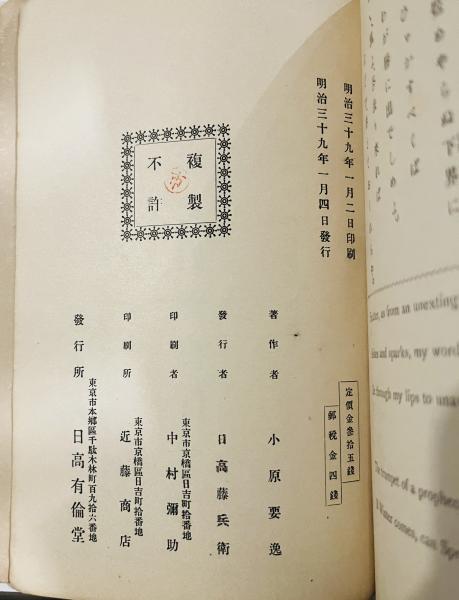 明治三十九年一月二日印刷
明治三十九年一月四日發行
複製
不許
定價金參拾五錢
郵税金四錢
著作者 小原要逸
發行者 日高藤兵衛
東京市京橋區日吉町拾番地
印刷者 中村彌助
東京市京橋區日吉町拾番地
印刷所 近藤商店
東京市本郷區千駄木林町百九拾六番地
發行所 日高有倫堂
as from an unexting
and sparks, my word
through my lips to una
The trumpet of a prophec
Winter comes, can Spr